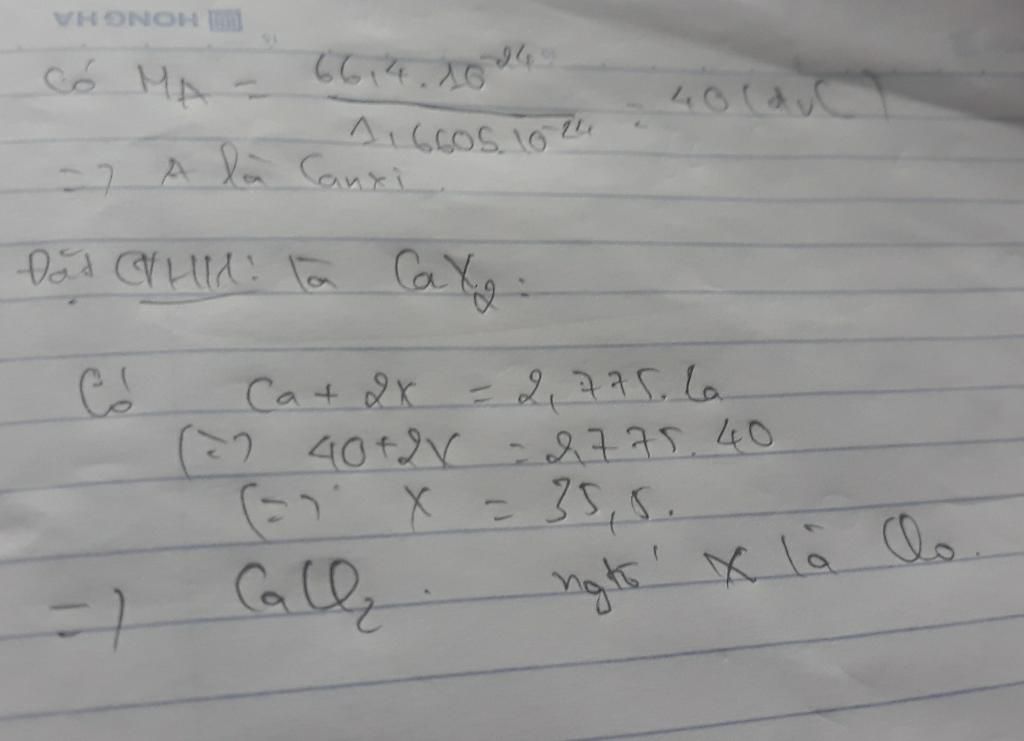 HONG HA
Có MA = 66,4.10^-24 / 1,6605.10^-24 = 40 (đvC)
=> A là Canxi.
Đặt CTHH: là CaX2:
Có Ca + 2X = 2,775.Ca
(=> 40+2X = 2,775.40
(=> X = 35,5.
=> CaCl2. ngtố X là Clo.